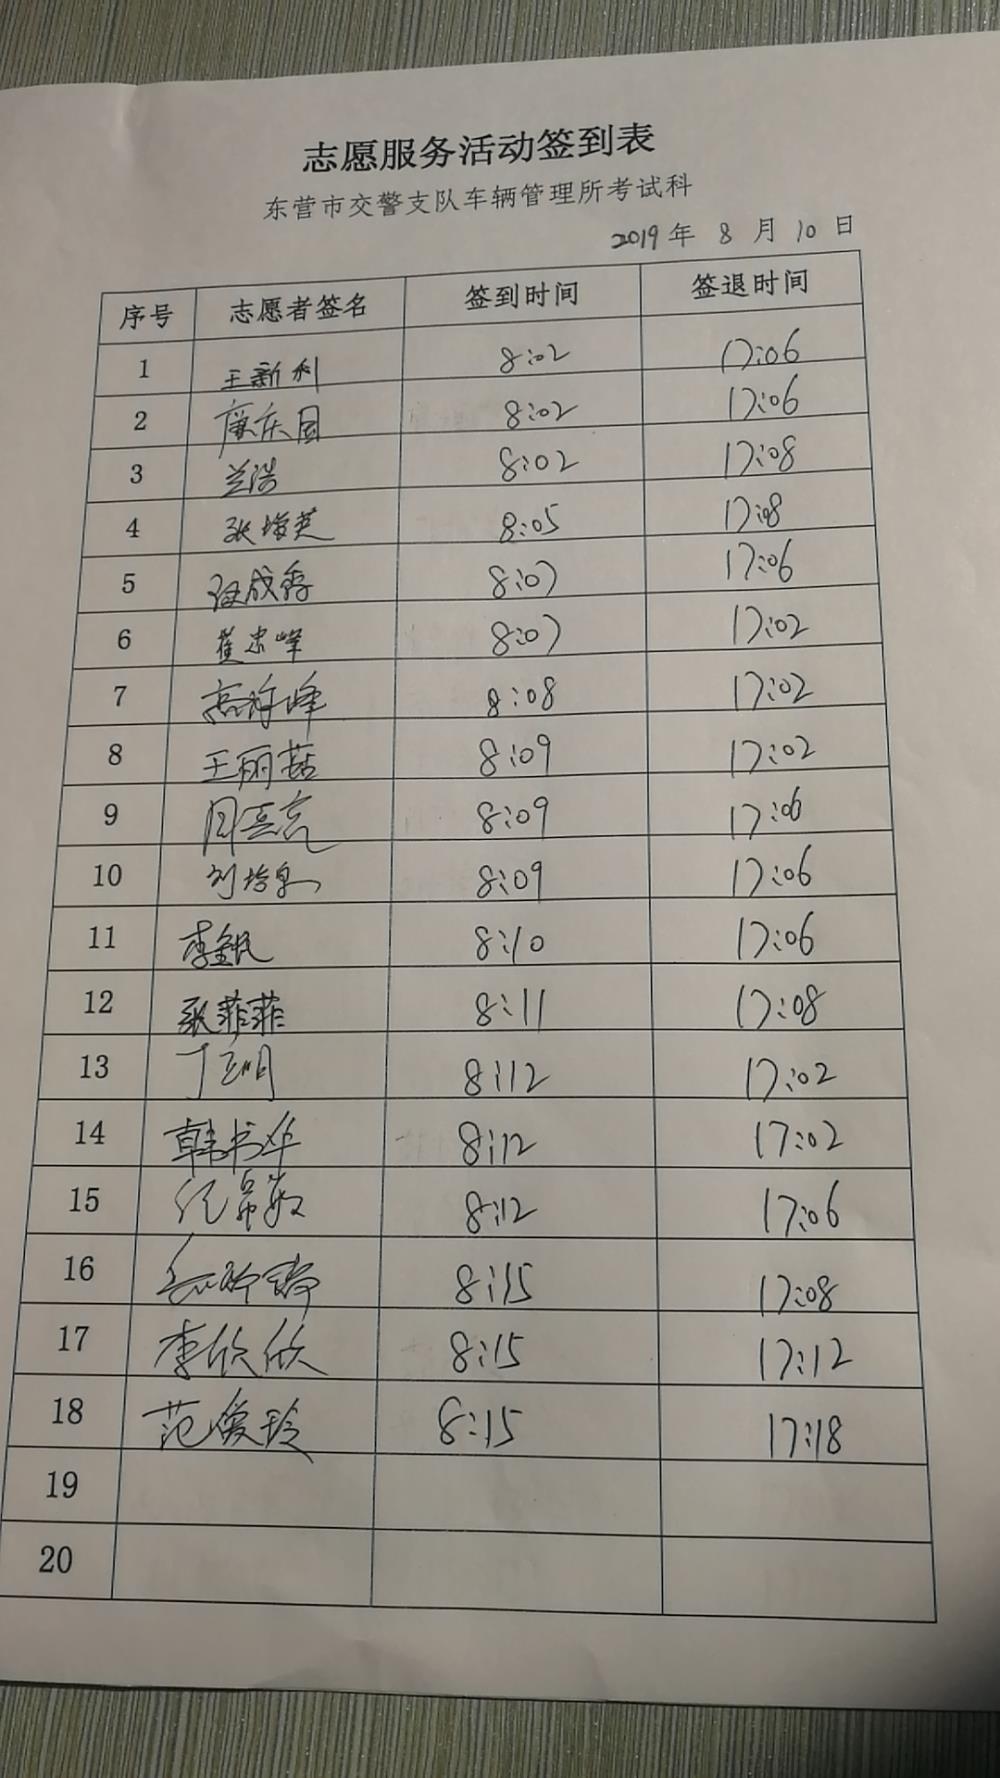 志愿服务活动签到表
东营市交警支队车辆管理所考试科
2019 年 8 月 10 日
序号 志愿者签名 签到时间 签退时间
1 王新利 8:02 17:06
2 康庆国 8:02 17:06
3 兰浩 8:02 17:08
4 张增英 8:05 17:08
5 8:07 17:06
6 崔忠峰 8:07 17:02
7 8:08 17:02
8 王丽茹 8:09 17:02
9 8:09 17:06
10 8:09 17:06
11 8:10 17:06
12 耿菲菲 8:11 17:08
13 8:12 17:02
14 韩书华 8:12 17:02
15 8:12 17:06
16 8:15 17:08
17 李欣欣 8:15 17:12
18 范俊玲 8:15 17:18
19
20